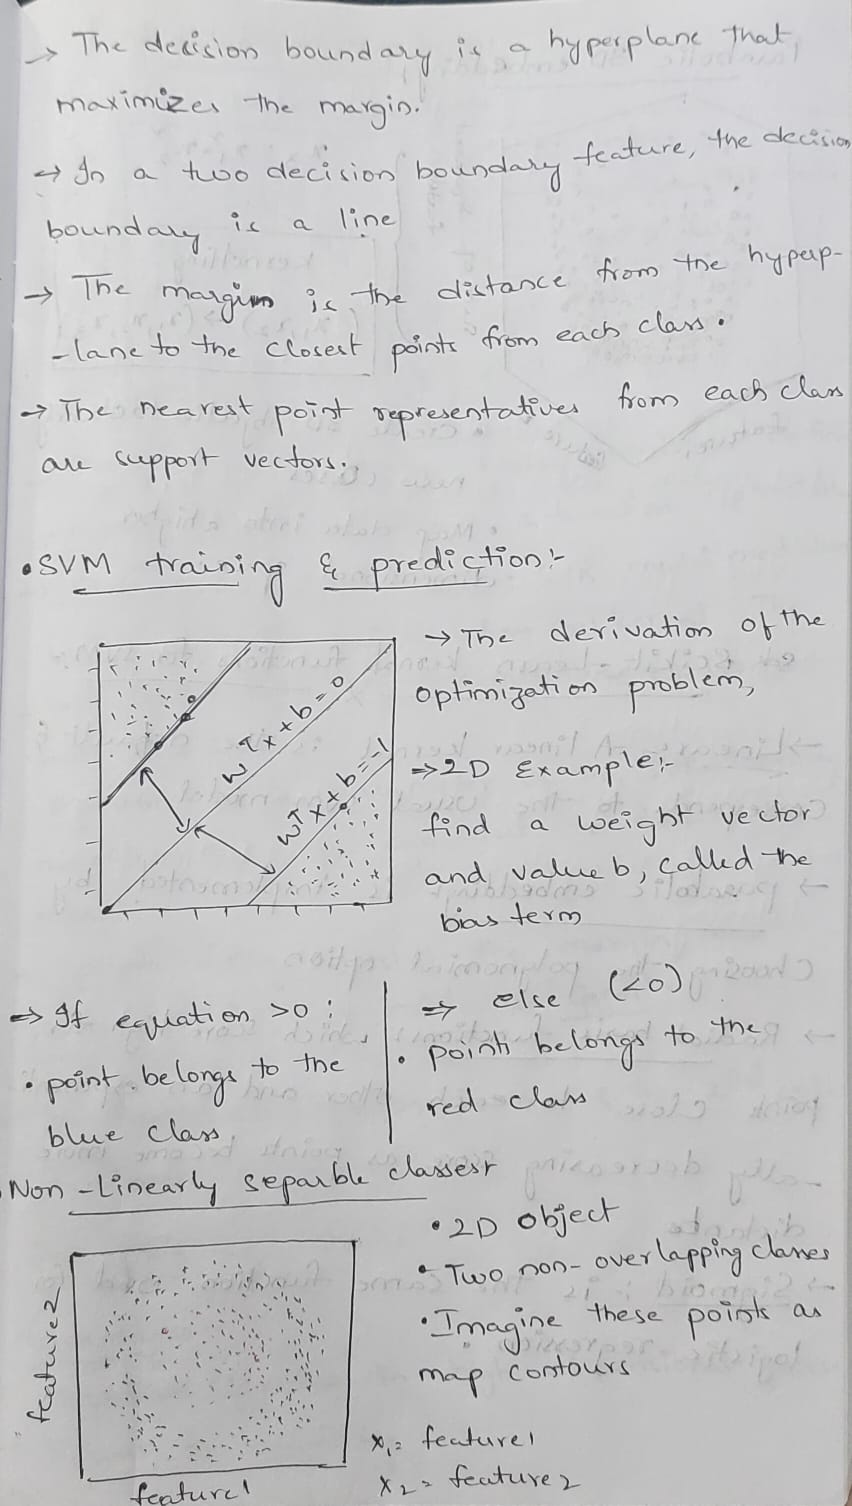 → The decision boundary is a hyperplane that
maximizes the margin.
→ In a two decision boundary feature, the decision
boundary is a line
→ The margin is the distance from the hyperp-
-lane to the closest points from each class.
→ The nearest point representatives from each class
are support vectors.
• SVM training & prediction:-
→ The derivation of the
optimization problem,
⇒ 2D Example:-
find a weight vector
and value b, called the
bias term
wᵀx+b=0
wᵀx+b=-1
⇒ If equation >0:
• point belongs to the
blue class
⇒ else (<0)
• point belongs to the
red class
• Non-Linearly separble classes:-
• 2D object
• Two non-overlapping classes
• Imagine these points as
map contours
x₁= feature1
x₂= feature2
feature2
feature1